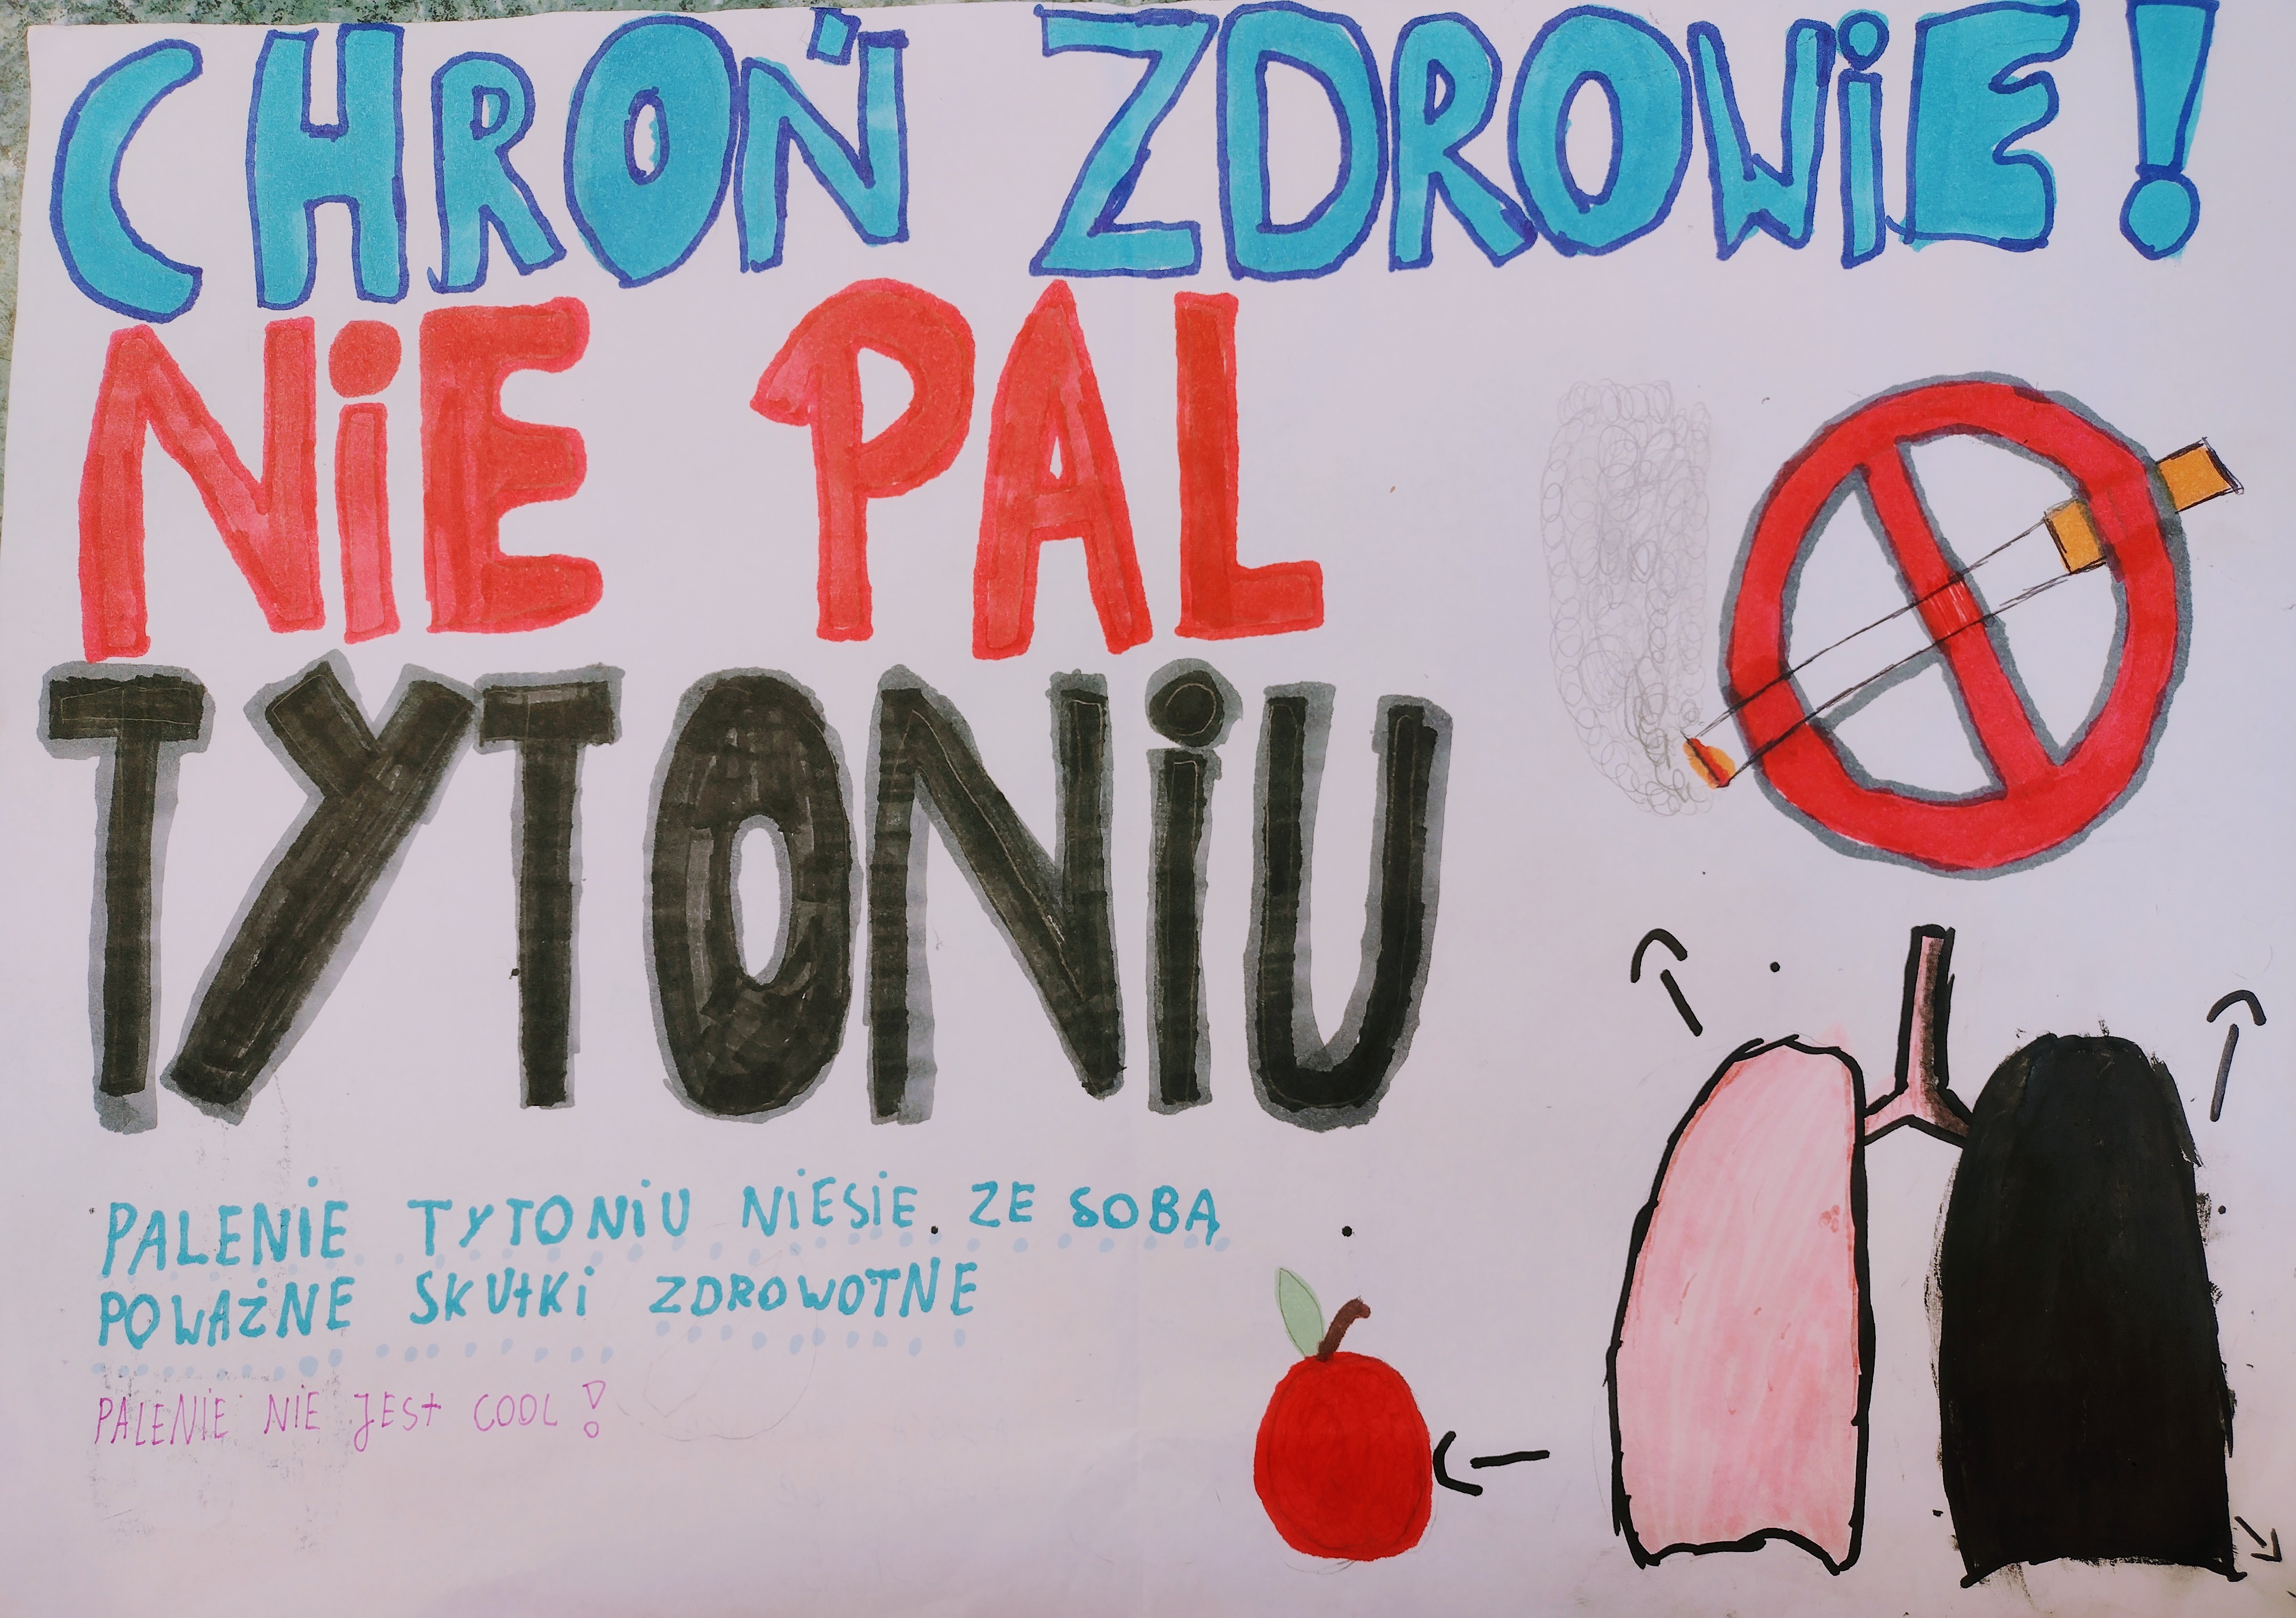 CHROŃ ZDROWiE!
NiE PAL
TYTONiU
PALENiE TYTONiU NiESiE ZE SOBĄ
POWAŻNE SKUtKi ZDROWOTNE
PALENiE NiE JESt COOL!